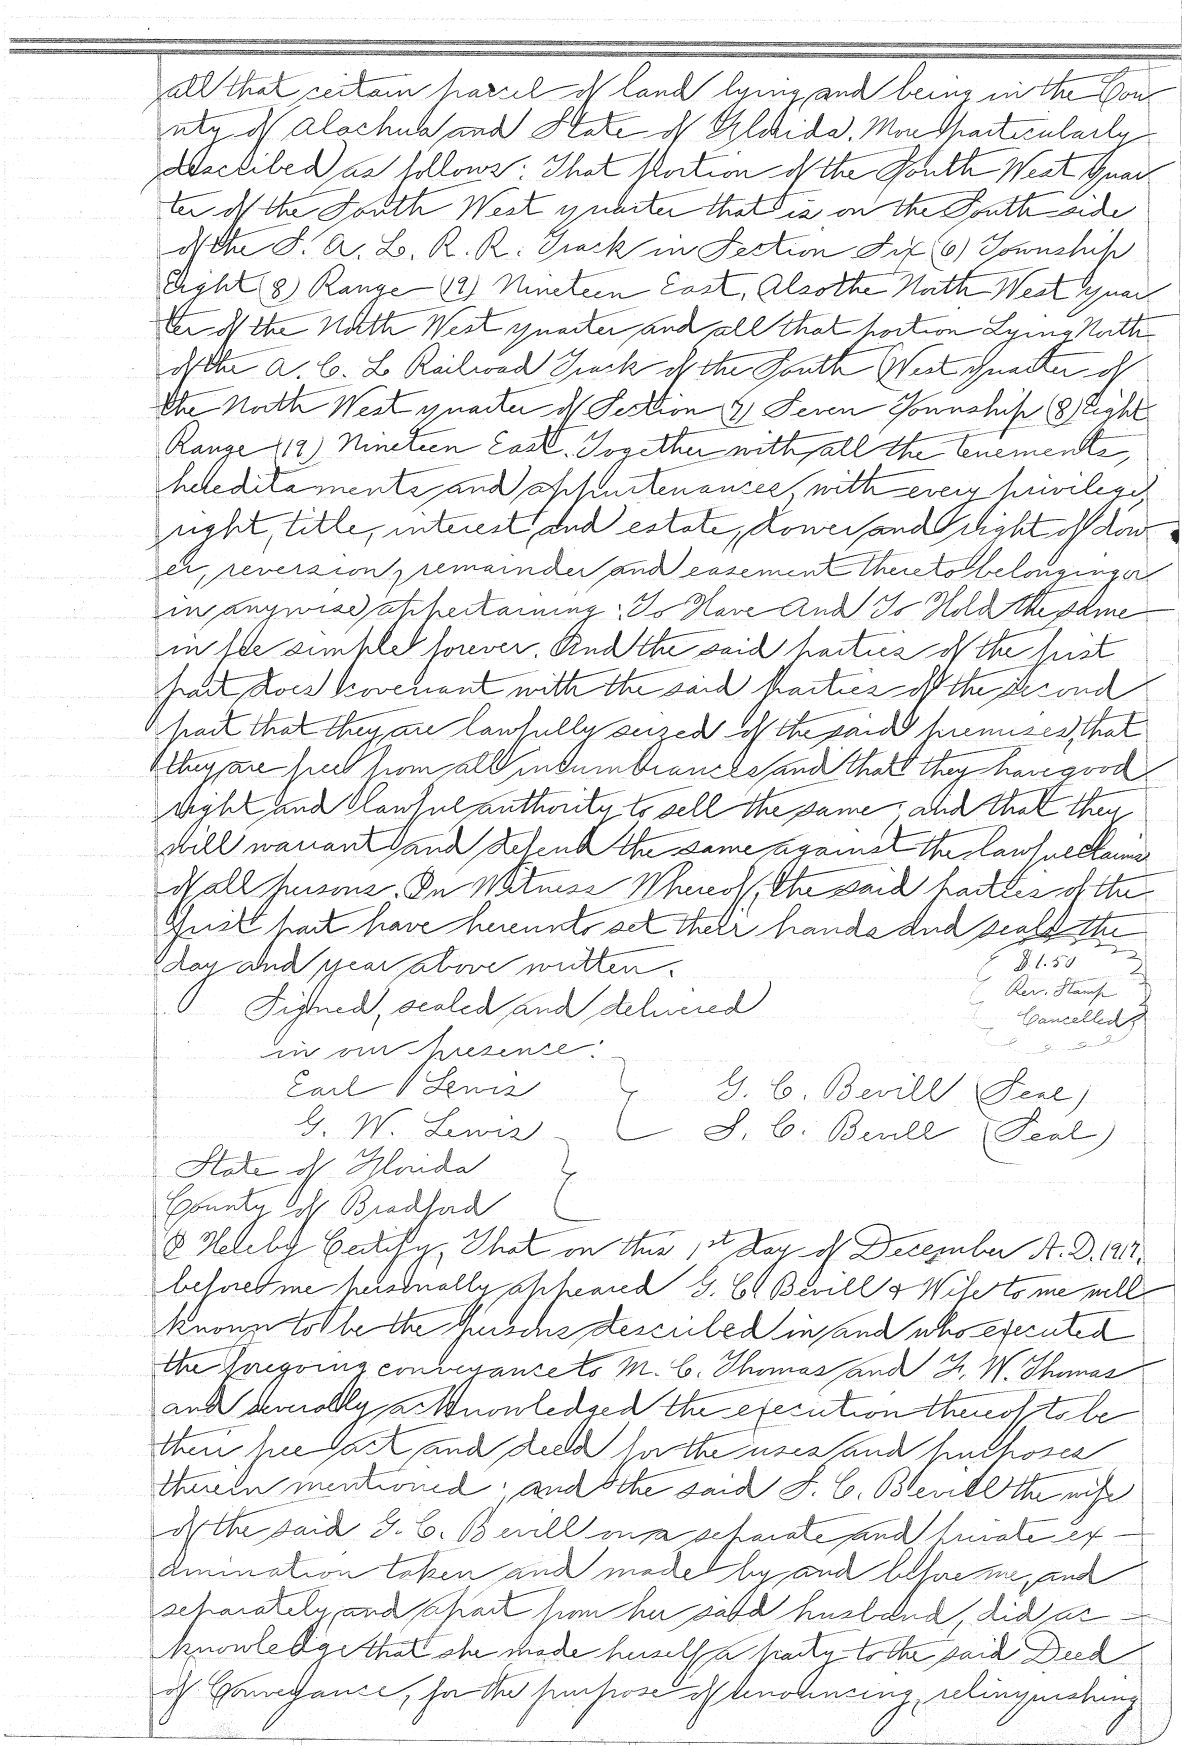 all that certain parcel of land lying and being in the Cou
nty of Alachua and State of Florida. More particularly
described as follows: That portion of the South West quar
ter of the South West quarter that is on the South side
of the S. A. L. R. R. Track in Section Six (6) Township
Eight (8) Range (19) Nineteen East, Also the North West quar
ter of the North West quarter and all that portion Lying North
of the A. C. L Railroad Track of the South West quarter of
the North West quarter of Section (7) Seven Township (8) Eight
Range (19) Nineteen East. Together with all the tenements,
hereditaments and appurtenances, with every privilege,
right, title, interest and estate, dower and right of dow
er, reversion, remainder and easement thereto belonging or
in anywise appertaining: To Have And To Hold the same
in fee simple forever. And the said parties of the first
part does covenant with the said parties of the second
part that they are lawfully seized of the said premises, that
they are free from all incumbrances and that they have good
right and lawful authority to sell the same; and that they
will warrant and defend the same against the lawful claims
of all persons. In Witness Whereof, the said parties of the
first part have hereunto set their hands and seals the
day and year above written.
$1.50
Rev. Stamp
Cancelled
Signed, sealed and delivered
in our presence:
Earl Lewis G. C. Bevill (Seal)
G. W. Lewis S. C. Bevill (Seal)
State of Florida
County of Bradford
I Hereby Certify, That on this 1st day of December A. D. 1917,
before me personally appeared G. C. Bevill & Wife to me well
known to be the persons described in and who executed
the foregoing conveyance to M. C. Thomas and F. W. Thomas
and severally acknowledged the execution thereof to be
their free act and deed for the uses and purposes
therein mentioned; and the said S. C. Bevill the wife
of the said G. C. Bevill on a separate and private ex-
amination taken and made by and before me, and
separately and apart from her said husband, did ac-
knowledge that she made herself a party to the said Deed
of Conveyance, for the purpose of renouncing, relinquishing